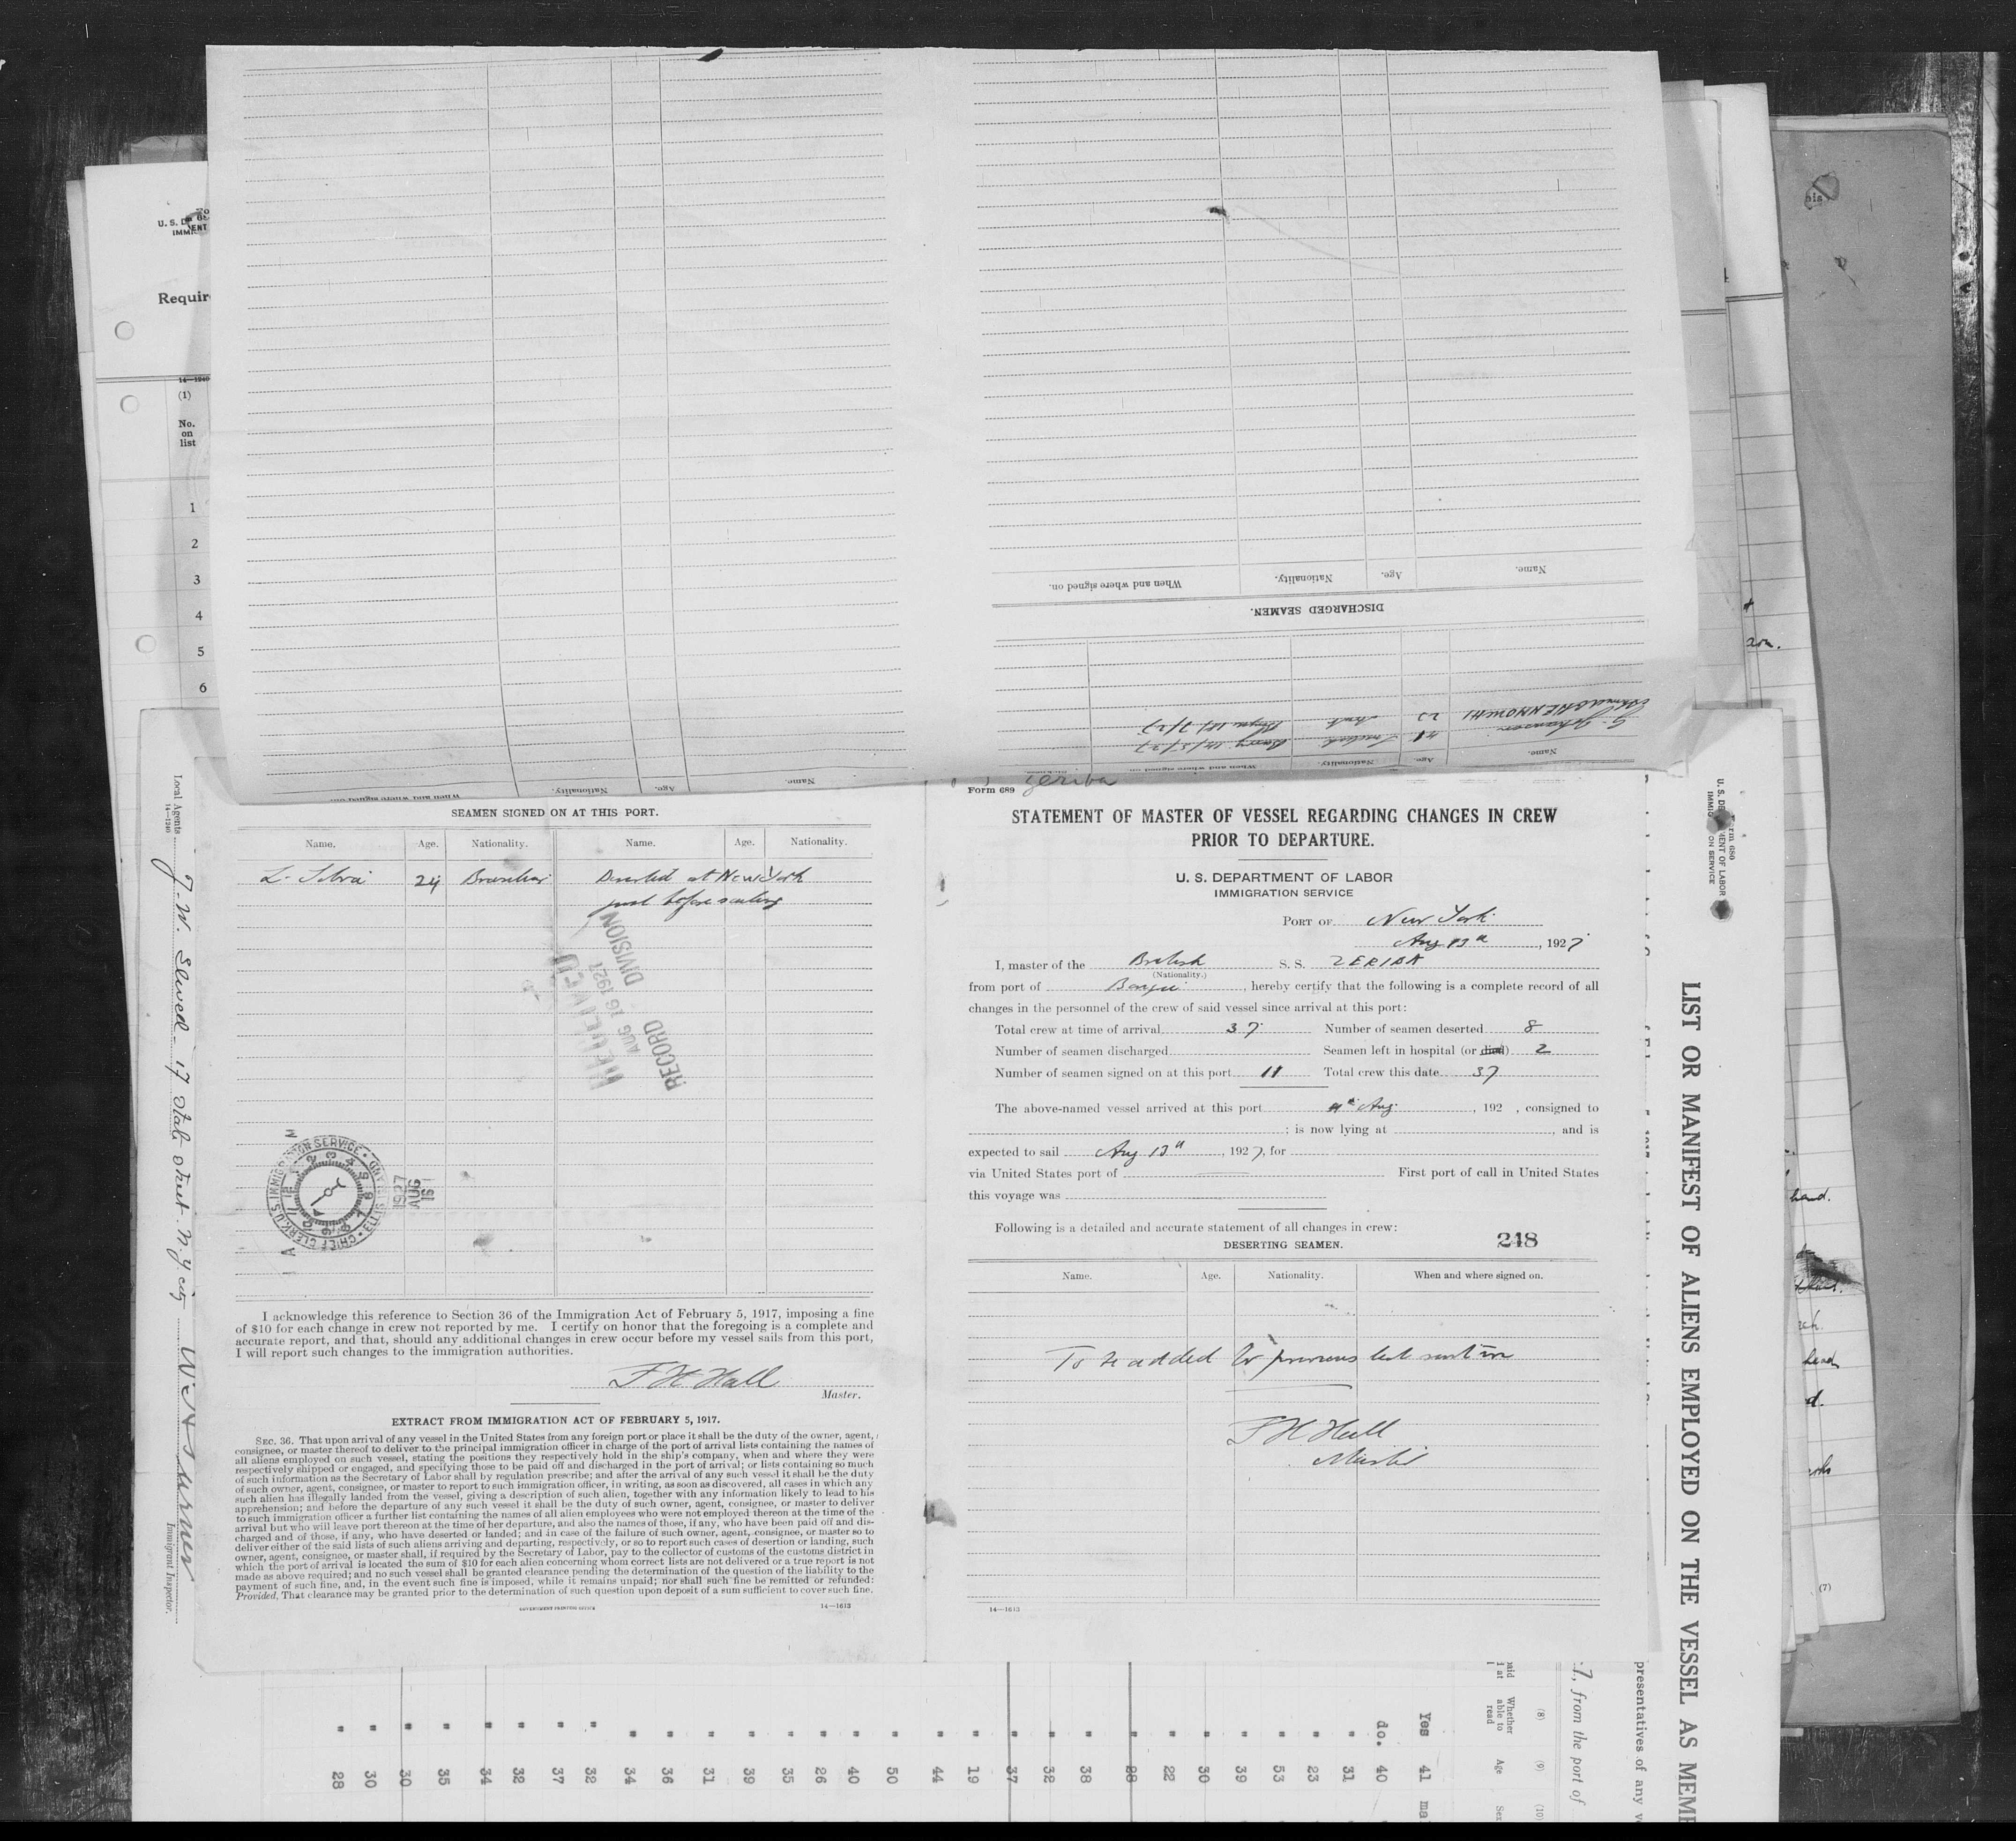 SEAMEN SIGNED ON AT THIS PORT.
Name. Age. Nationality. Name. Age. Nationality.
L. Silva 24 Brazilian Deserted at New York
just before sailing
RECEIVED
AUG 16 1927
RECORD DIVISION
CHIEF CLERK. U.S. IMMIGRATION SERVICE • ELLIS ISLAND
AUG 15 1927
I acknowledge this reference to Section 36 of the Immigration Act of February 5, 1917, imposing a fine
of $10 for each change in crew not reported by me. I certify on honor that the foregoing is a complete and
accurate report, and that, should any additional changes in crew occur before my vessel sails from this port,
I will report such changes to the immigration authorities.
F H Hall
Master.
EXTRACT FROM IMMIGRATION ACT OF FEBRUARY 5, 1917.
SEC. 36. That upon arrival of any vessel in the United States from any foreign port or place it shall be the duty of the owner, agent,
consignee, or master thereof to deliver to the principal immigration officer in charge of the port of arrival lists containing the names of
all aliens employed on such vessel, stating the positions they respectively hold in the ship's company, when and where they were
respectively shipped or engaged, and specifying those to be paid off and discharged in the port of arrival; or lists containing so much
of such information as the Secretary of Labor shall by regulation prescribe; and after the arrival of any such vessel it shall be the duty
of such owner, agent, consignee, or master to report to such immigration officer, in writing, as soon as discovered, all cases in which any
such alien has illegally landed from the vessel, giving a description of such alien, together with any information likely to lead to his
apprehension; and before the departure of any such vessel it shall be the duty of such owner, agent, consignee, or master to deliver
to such immigration officer a further list containing the names of all alien employees who were not employed thereon at the time of the
arrival but who will leave port thereon at the time of her departure, and also the names of those, if any, who have been paid off and dis-
charged and of those, if any, who have deserted or landed; and in case of the failure of such owner, agent, consignee, or master so to
deliver either of the said lists of such aliens arriving and departing, respectively, or so to report such cases of desertion or landing, such
owner, agent, consignee, or master shall, if required by the Secretary of Labor, pay to the collector of customs of the customs district in
which the port of arrival is located the sum of $10 for each alien concerning whom correct lists are not delivered or a true report is not
made as above required; and no such vessel shall be granted clearance pending the determination of the question of the liability to the
payment of such fine, and, in the event such fine is imposed, while it remains unpaid; nor shall such fine be remitted or refunded:
Provided, That clearance may be granted prior to the determination of such question upon deposit of a sum sufficient to cover such fine.
GOVERNMENT PRINTING OFFICE 14—1613
Zeriba
Form 689
STATEMENT OF MASTER OF VESSEL REGARDING CHANGES IN CREW
PRIOR TO DEPARTURE.
U. S. DEPARTMENT OF LABOR
IMMIGRATION SERVICE
PORT OF New York
Aug 13th, 1927
I, master of the British S. S. ZERIBA
(Nationality.)
from port of , hereby certify that the following is a complete record of all
changes in the personnel of the crew of said vessel since arrival at this port:
Total crew at time of arrival 37 Number of seamen deserted 8
Number of seamen discharged Seamen left in hospital (or died) 2
Number of seamen signed on at this port 11 Total crew this date 37
The above-named vessel arrived at this port Aug, 192 , consigned to
; is now lying at , and is
expected to sail Aug 13th, 1927, for
via United States port of First port of call in United States
this voyage was
Following is a detailed and accurate statement of all changes in crew:
DESERTING SEAMEN. 248
Name. Age. Nationality. When and where signed on.
To be added to previous list sent in
F H Hall
Master
14—1613
DISCHARGED SEAMEN.
Name. Age. Nationality. When and where signed on.
Name. Age. Nationality. When and where signed on.
Name. Age. Nationality. When and where signed on.
Requir
14—1240
(1)
No.
on
list
1
2
3
4
5
6
Local Agents
14—1240
17 State Street. N.Y. City
Immigrant Inspector.
LIST OR MANIFEST OF ALIENS EMPLOYED ON THE VESSEL AS MEM
Form 680
presentatives of any
, from the port of
(8) (9) (10)
Whether able to read Age Sex
Yes 41 ma
do. 40
" 31
" 23
" 53
" 39
" 30
" 22
" 28
" 38
" 32
" 37
" 19
" 44
" 50
" 40
" 26
" 35
" 39
" 31
" 36
" 34
" 32
" 37
" 32
" 34
" 35
" 30
" 30
" 28
(7)